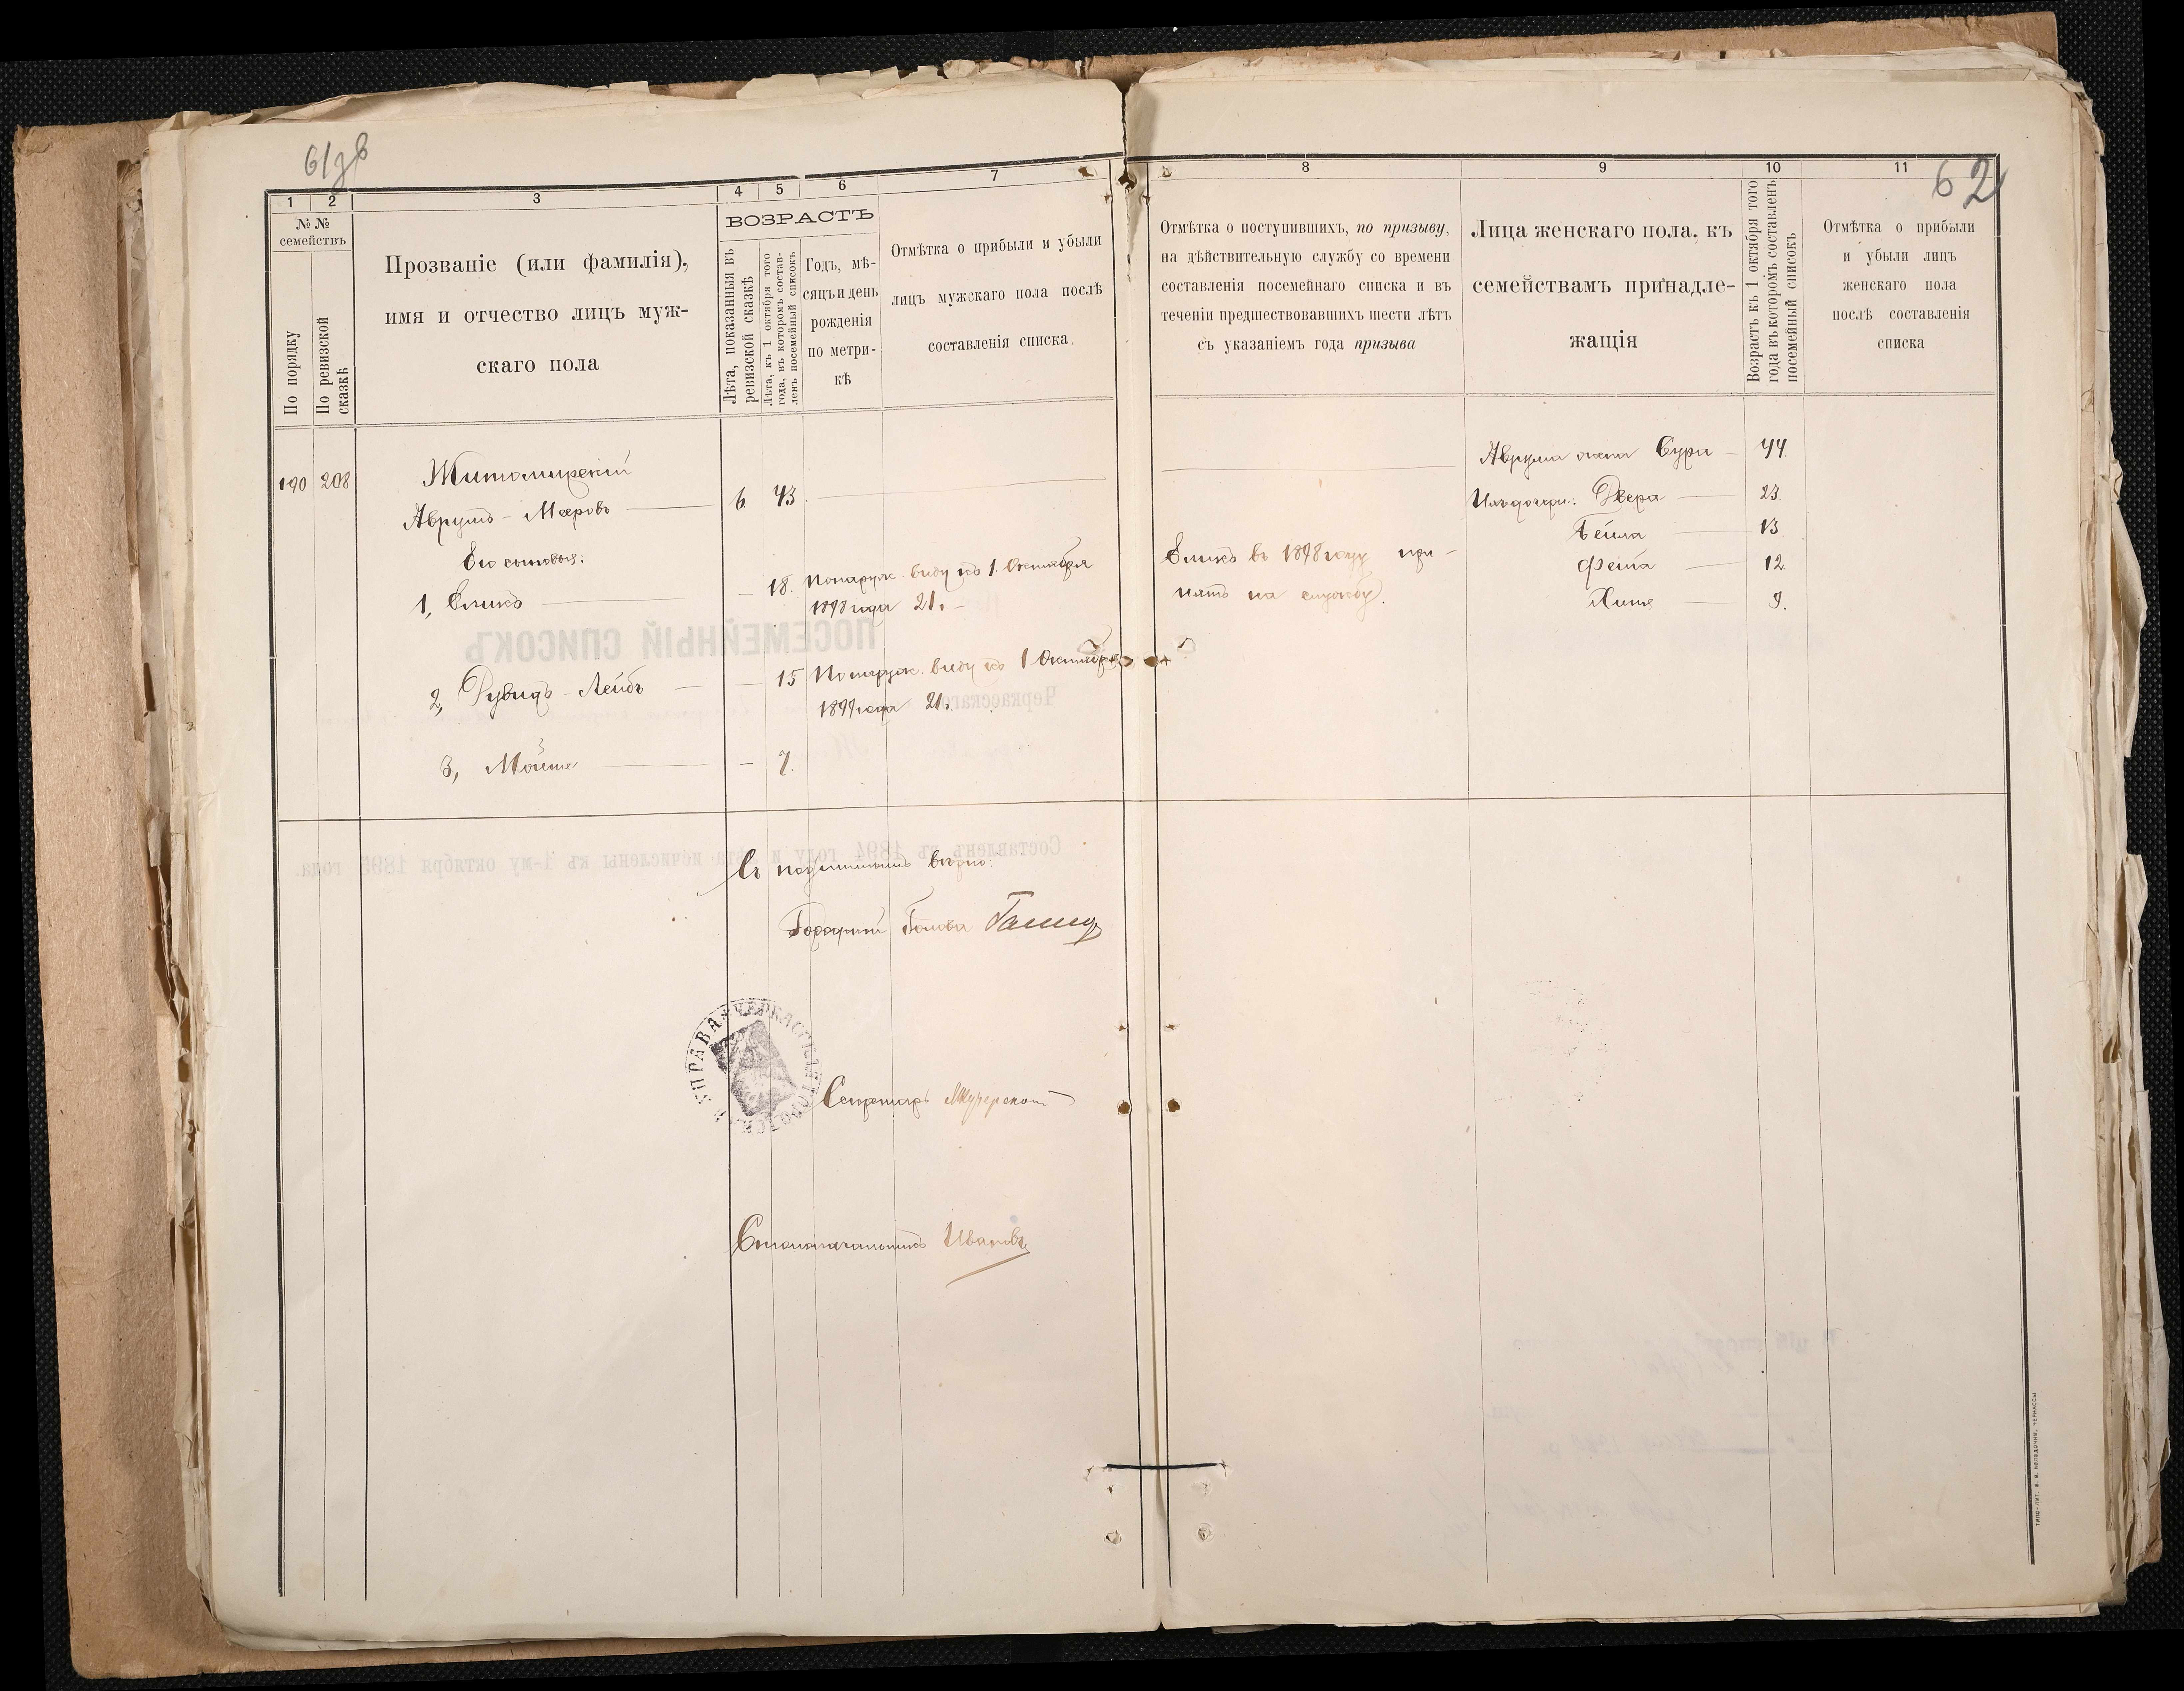 61 зв
62
1
2
3
4
5
6
7
8
9
10
11
№ №
семействъ
По порядку
По ревизской
сказкѣ
Прозваніе (или фамилія),
имя и отчество лицъ муж-
скаго пола
ВОЗРАСТЪ
Лѣта, показанныя въ
ревизской сказкѣ
Лѣта, къ 1 октября того
года, въ которомъ состав-
ленъ посемейный списокъ
Годъ, мѣ-
сяцъ и день
рожденія
по метри-
кѣ
Отмѣтка о прибыли и убыли
лицъ мужскаго пола послѣ
составленія списка
Отмѣтка о поступившихъ, по призыву,
на дѣйствительную службу со времени
составленія посемейнаго списка и въ
теченіи предшествовавшихъ шести лѣтъ
съ указаніемъ года призыва
Лица женскаго пола, къ
семействамъ принадле-
жащія
Возрастъ къ 1 октября того
года въ которомъ составленъ
посемейный списокъ
Отмѣтка о прибыли
и убыли лицъ
женскаго пола
послѣ составленія
списка
190 208 Житомирскій
Аврумъ-Мееровъ — 6. 43.
Его сыновья:
1, Еликъ — 18. По наруж. виду къ 1. Октября
1898 года 21. —
2, Дувидъ-Лейбъ — 15 По наруж. виду къ 1 Октября
1899 года 21.
3, Мойше — 7.
Еликъ въ 1898 году при-
нятъ на службу.
Аврума жена Сура — 44.
Ихъ дочери: Двера — 23.
Бейла — 13.
Фейга — 12.
Хина — 9.
Съ подлиннымъ вѣрно:
Городской Голова
Секретарь
Столоначальникъ Ивановъ
УПРАВА ЧЕРКАССКАЯ ГОРОДСКАЯ
ПОСЕМЕЙНЫЙ СПИСОКЪ
Черкасскаго
Составленъ въ 1894 году и лѣта исчислены къ 1-му октября 1895 года.